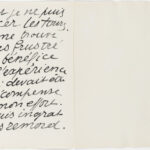 t je ne puis
cer les tours
me trouve
as frustré
bénéfice
l'expérience
devait
compense
mon effort.
suis ingrat
s remords.